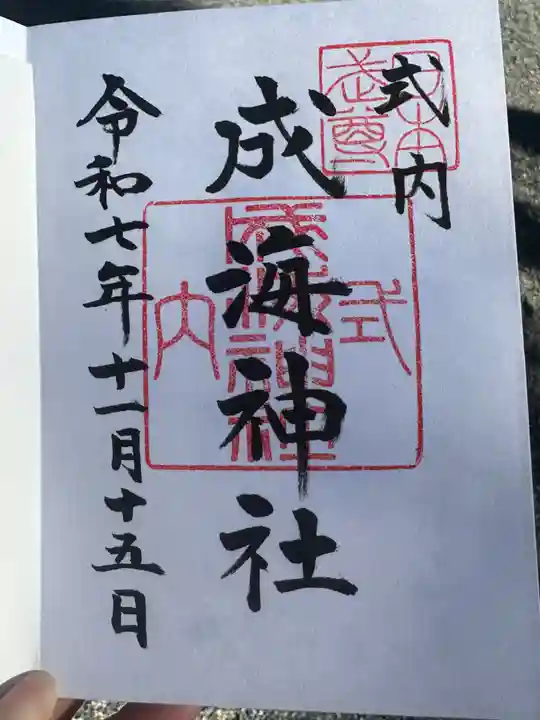 式内
成海神社
令和七年十一月十五日
日本武尊
式内
成海神社